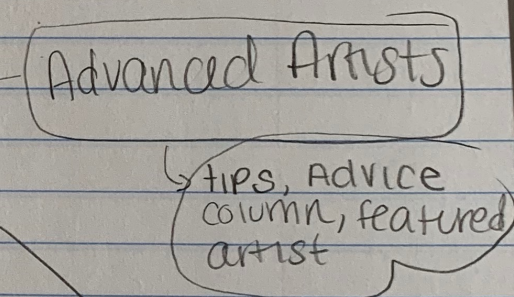 Advanced Artists
tips, Advice
column, featured
artist